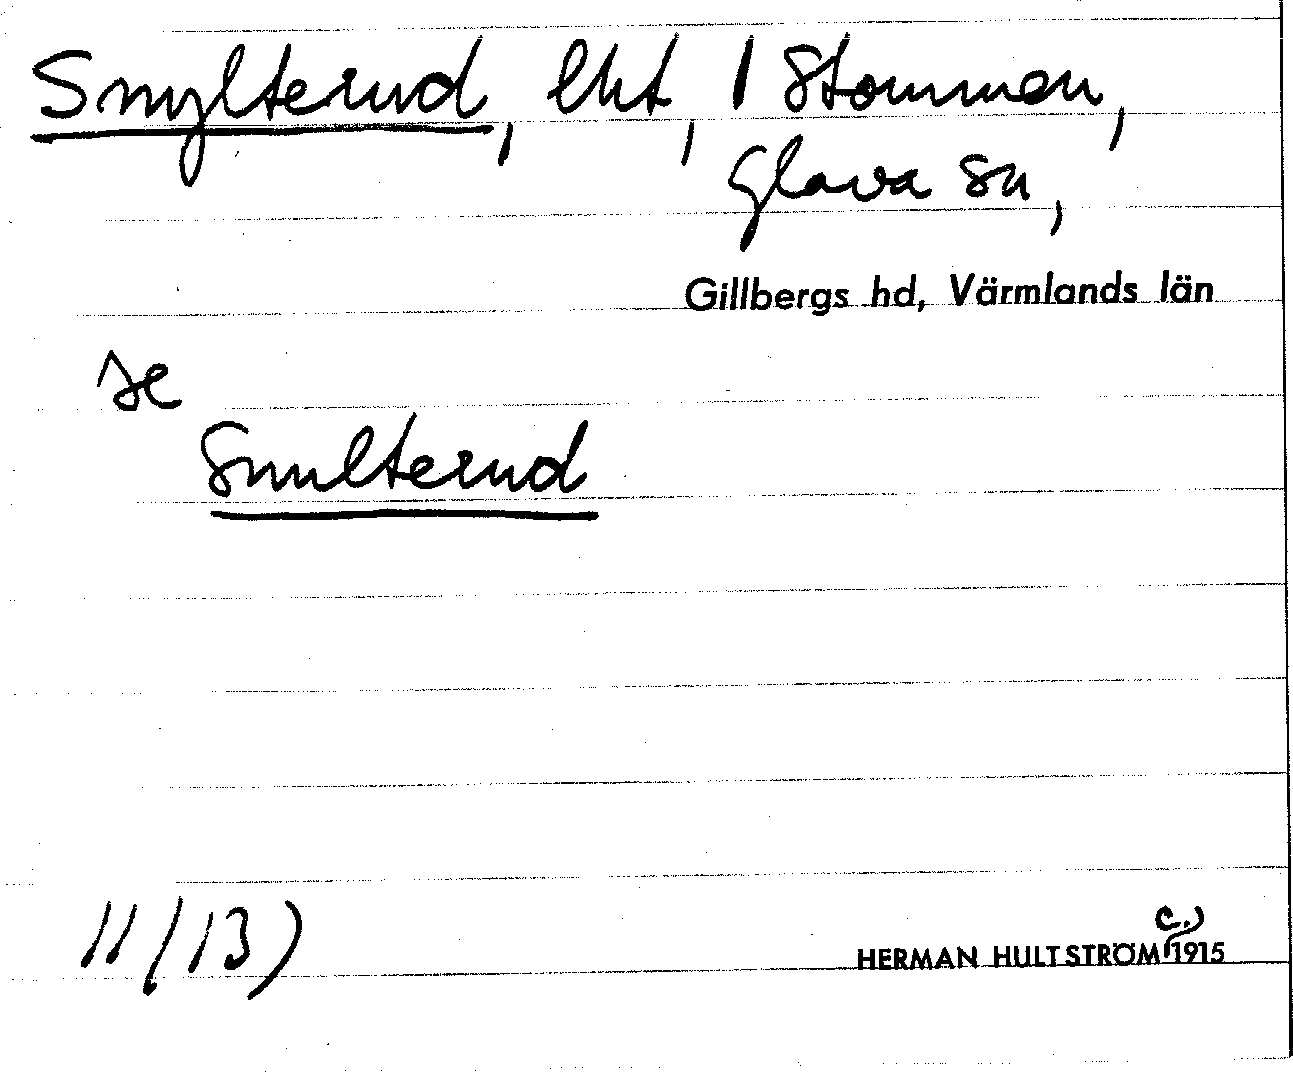 Snylterud, lht, 1 Stommen,
Glava sn,
Gillbergs hd, Värmlands län
se
Smulterud
11/13)
HERMAN HULTSTRÖM (c.) 1915